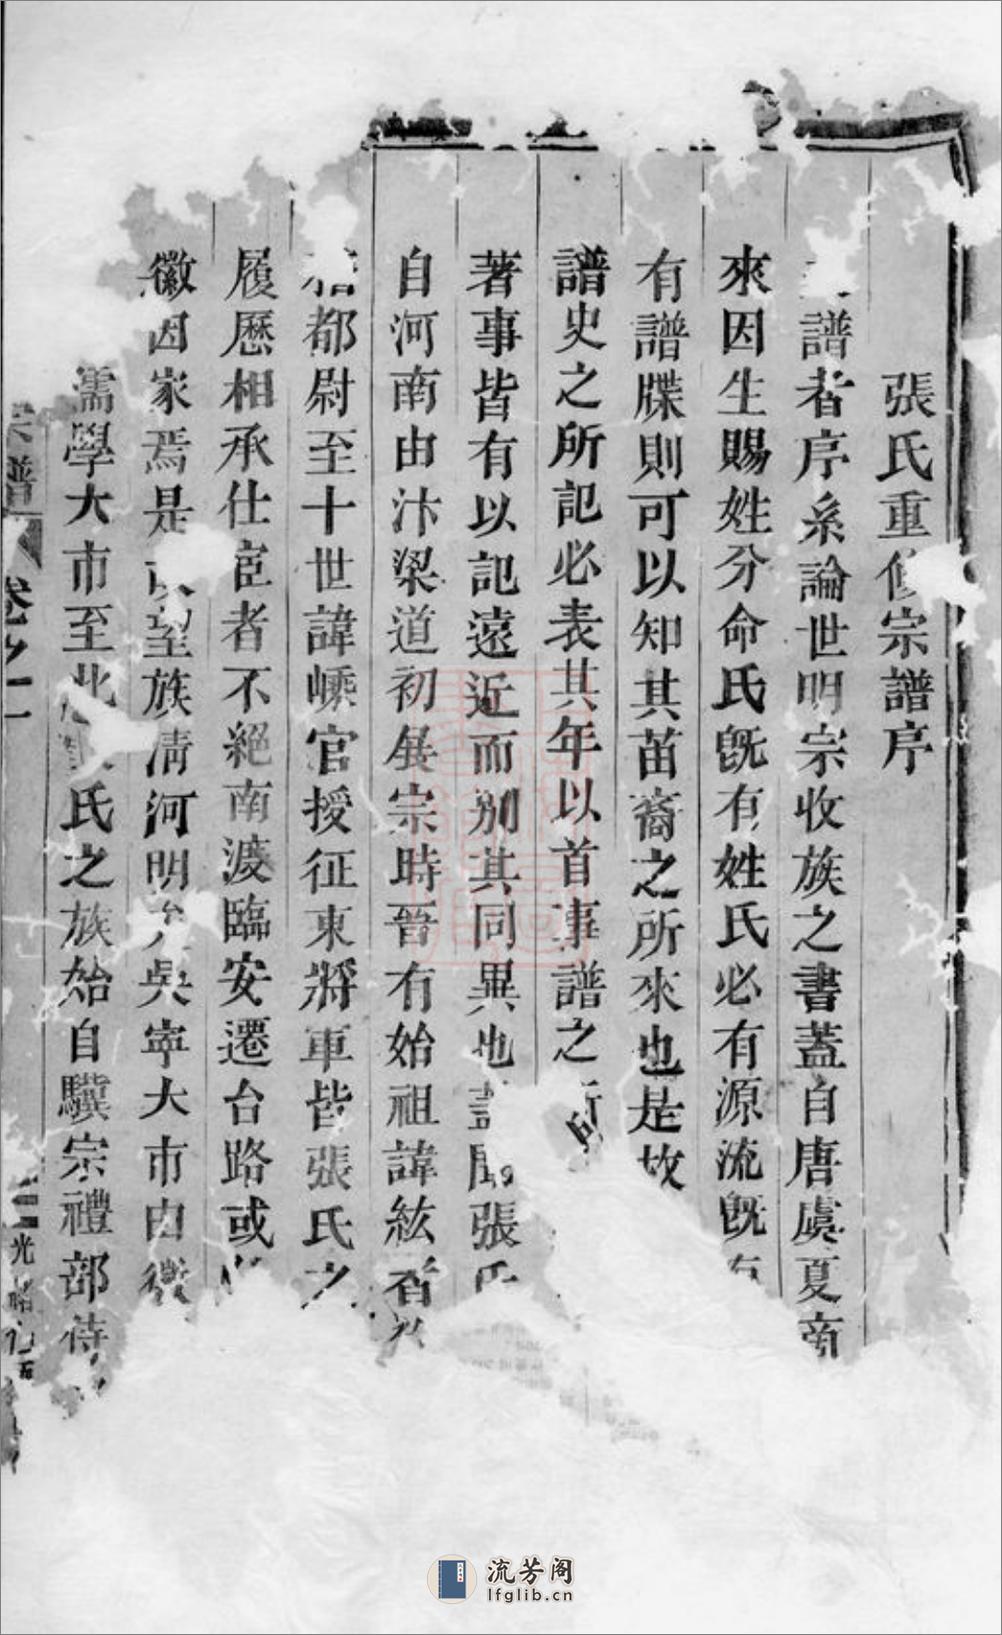 張氏重修宗譜序
譜者序系論世明宗收族之書蓋自唐虞夏商
來因生賜姓分命氏旣有姓氏必有源流旣有
有譜牒則可以知其苗裔之所來也是故
譜史之所記必表其年以首事譜之所
著事皆有以記遠近而别其同異也蓋聞張氏
自河南由汴梁道初展宗時晉有始祖諱紘者
都尉至十世諱嵊官授征東將軍皆張氏之
履歷相承仕宦者不絕南渡臨安遷台路或
徽因家焉是望族淸河明吳寧大市由微
儒學大市至北氏之族始自驥宗禮部侍
宗譜
卷之一
光緒
流芳阁
lfglib.cn